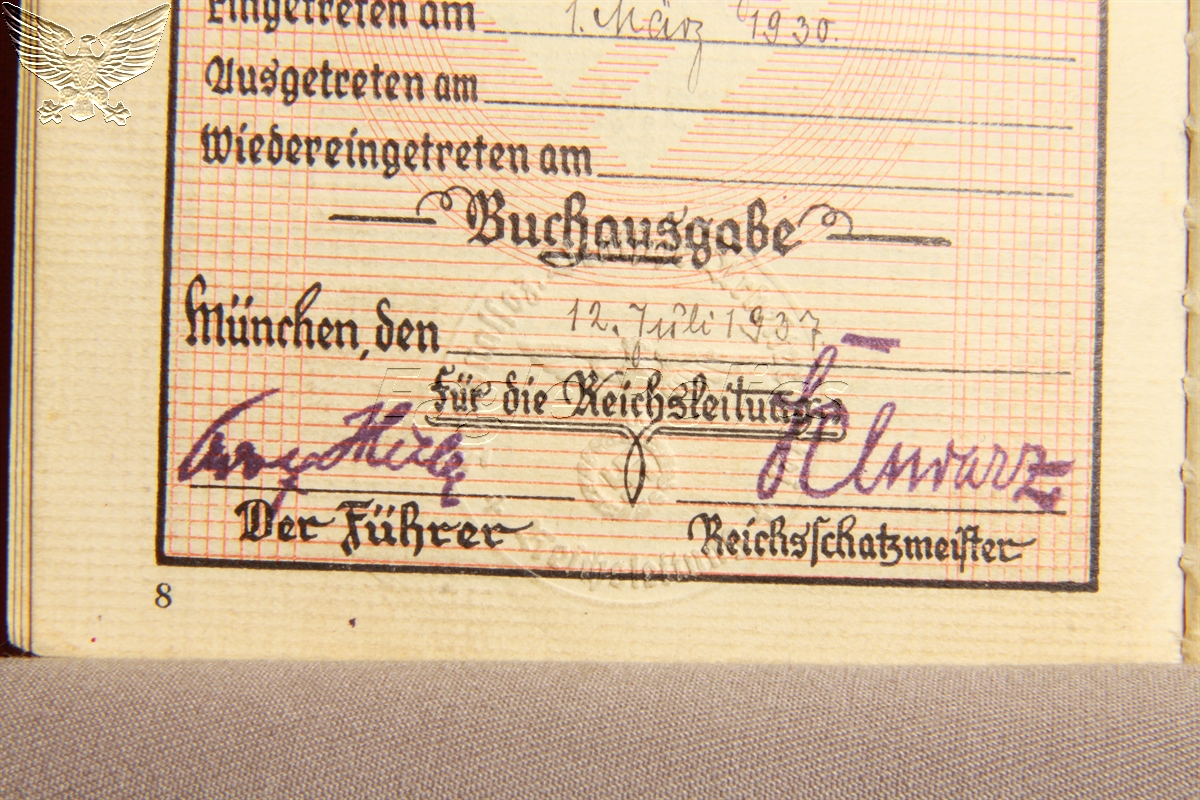 Eingetreten am 1. März 1930.
Ausgetreten am
Wiedereingetreten am
Buchausgabe
München, den 12. Juli 1937.
Für die Reichsleitung
Schwarz
Der Führer Reichsschatzmeister
8